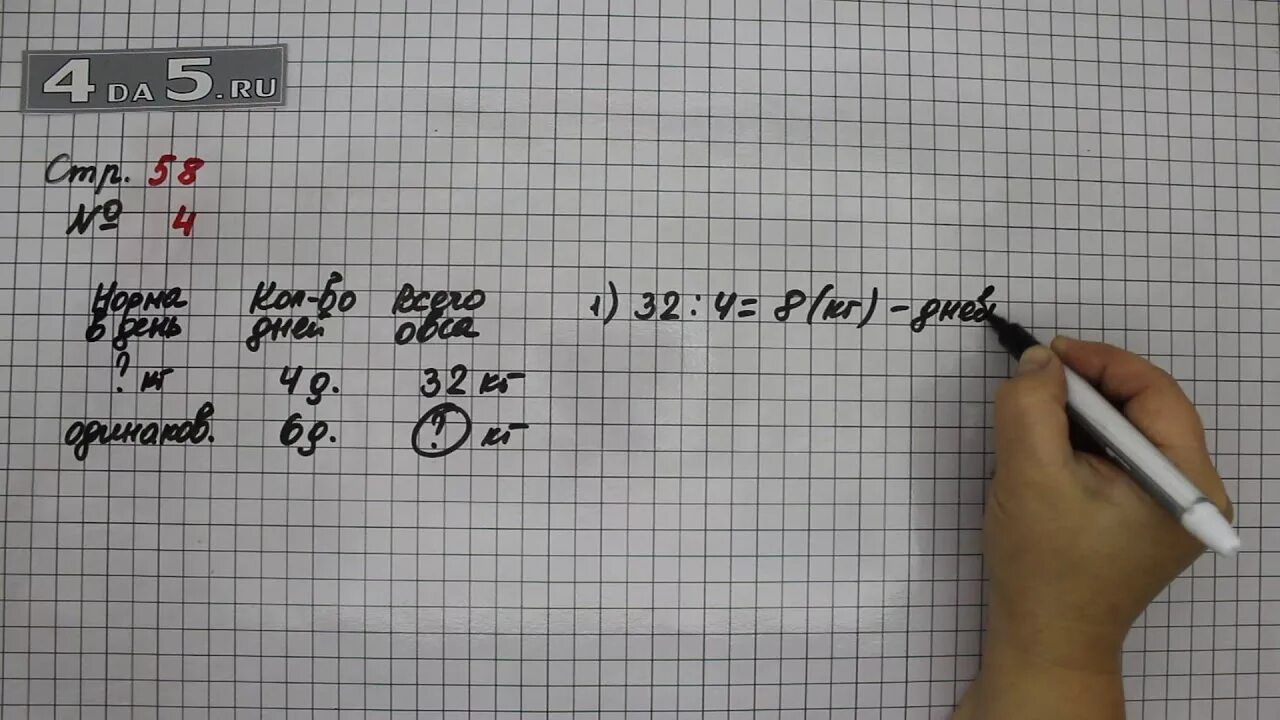 4 DA 5.RU
Стр. 58
№ 4
Норма Кол-во Всего
в день дней овса
? кг 4 д. 32 кг
одинаков. 6 д. ? кг
1) 32 : 4 = 8 (кг) - днев